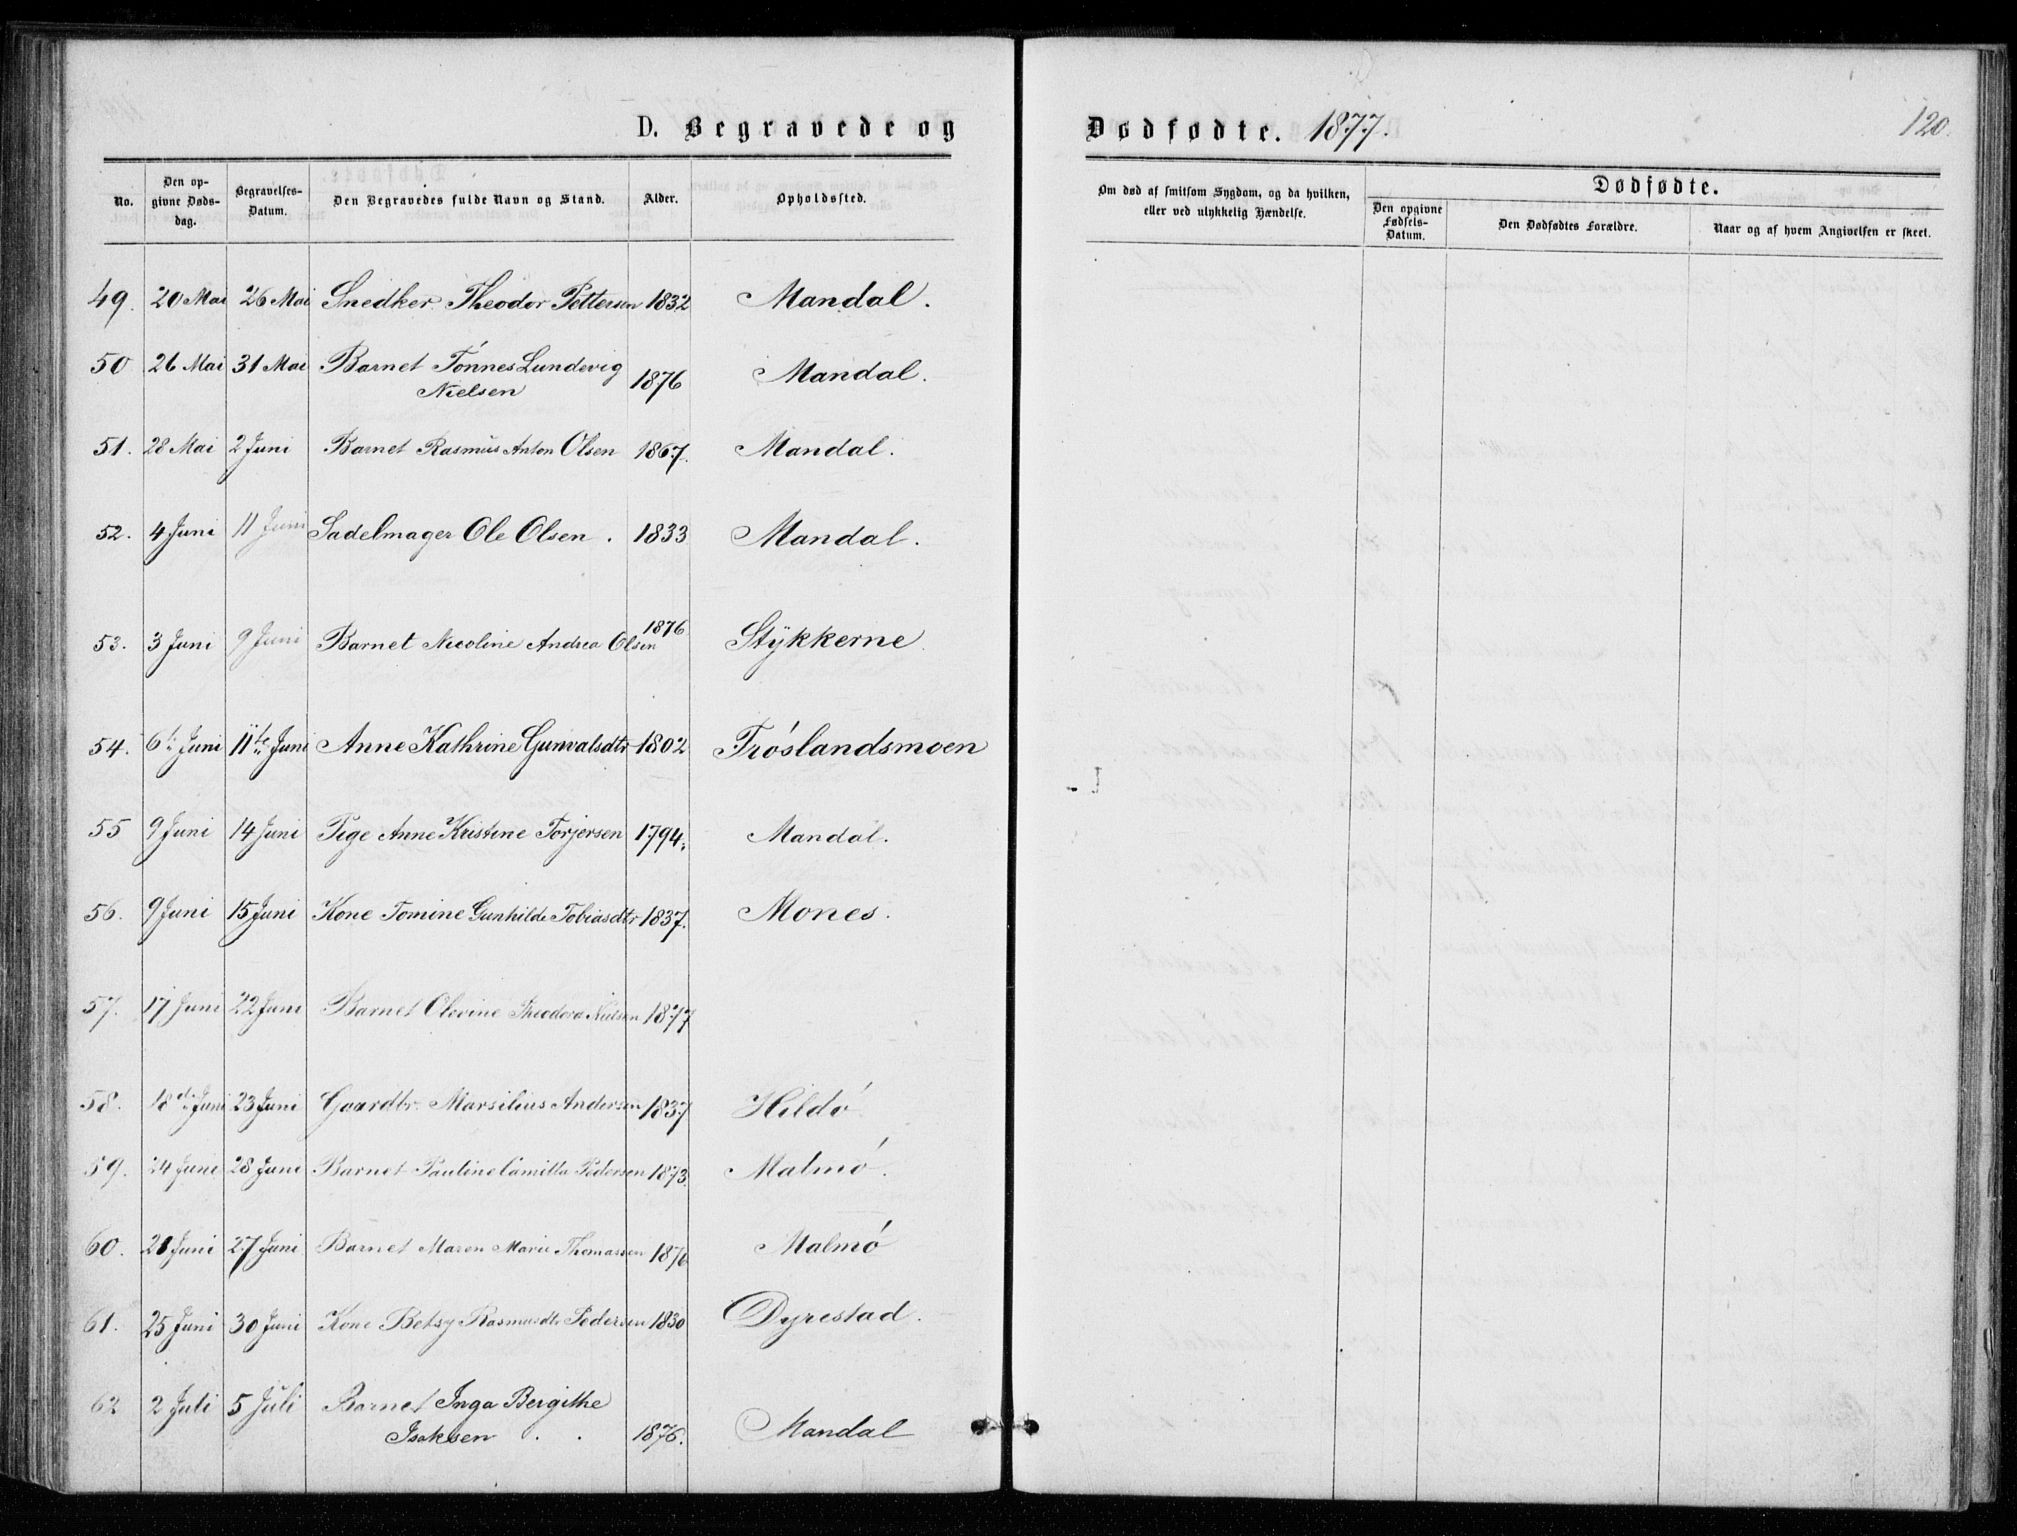 D. Begravede og Dødfødte. 1877. 120.
No. | Den opgivne Dødsdag. | Begravelses-Datum. | Den Begravedes fulde Navn og Stand. | Alder. | Opholdssted. | Om død af smitsom Sygdom, og da hvilken, eller ved ulykkelig Hændelse. | Dødfødte. | Den opgivne Fødsels-Datum. | Den Dødfødtes Forældre. | Naar og af hvem Angivelsen er skeet.
49. 20 Mai 26 Mai Snedker Theodor Pettersen 1832 Mandal.
50 26 Mai 31 Mai Barnet Tönnes Lundevig
Nielsen 1876 Mandal.
51. 28 Mai 2 Juni Barnet Rasmus Anton Olsen 1867. Mandal.
52. 4 Juni 11 Juni Sadelmager Ole Olsen . 1833 Mandal.
53. 3 Juni 9 Juni Barnet Nicoline Andrea Olsen 1876 Stÿkkerne
54. 6te Juni 11te Juni Anne Kathrine Gunvalsdtr 1802 Tróslandsmoen
55 9 Juni 14 Juni Pige Anne Kristine Torjersen 1794. Mandal.
56. 9 Juni 15 Juni Kone Tomine Gunhilde Tobiasdtr 1837. Mones.
57. 17 Juni 22 Juni Barnet Olevine Theodora Nielsen 1877
58. 18de Juni 23 Juni Gaardbr. Marsilius Andersen 1837 Hildó
59. 24 Juni 28 Juni Barnet Pauline Camilla Pedersen 1873. Malmó.
60. 21 Juni 27 Juni Barnet Maren Marie Thomassen 1876 Malmó
61. 25 Juni 30 Juni Kone Betsy Rasmusdtr Pedersen 1830 Dyrestad.
62 2 Juli 5 Juli Barnet Inga Bergithe
Isaksen . . 1876. Mandal